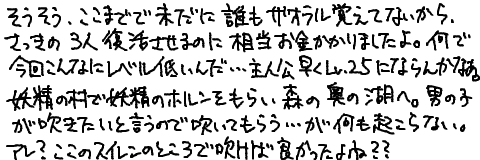 そうそう、ここまでで未だに誰もザオラル覚えてないから、
さっきの3人復活させるのに相当お金かかりましたよ。何で
今回こんなにレベル低いんだ…主人公早くLv.25にならんかなぁ。
妖精の村で妖精のホルンをもらい森の奥の湖へ。男の子
が吹きたいと言うので吹いてもらう…が何も起こらない。
アレ?ここのスイレンのところで吹けば良かったよね??